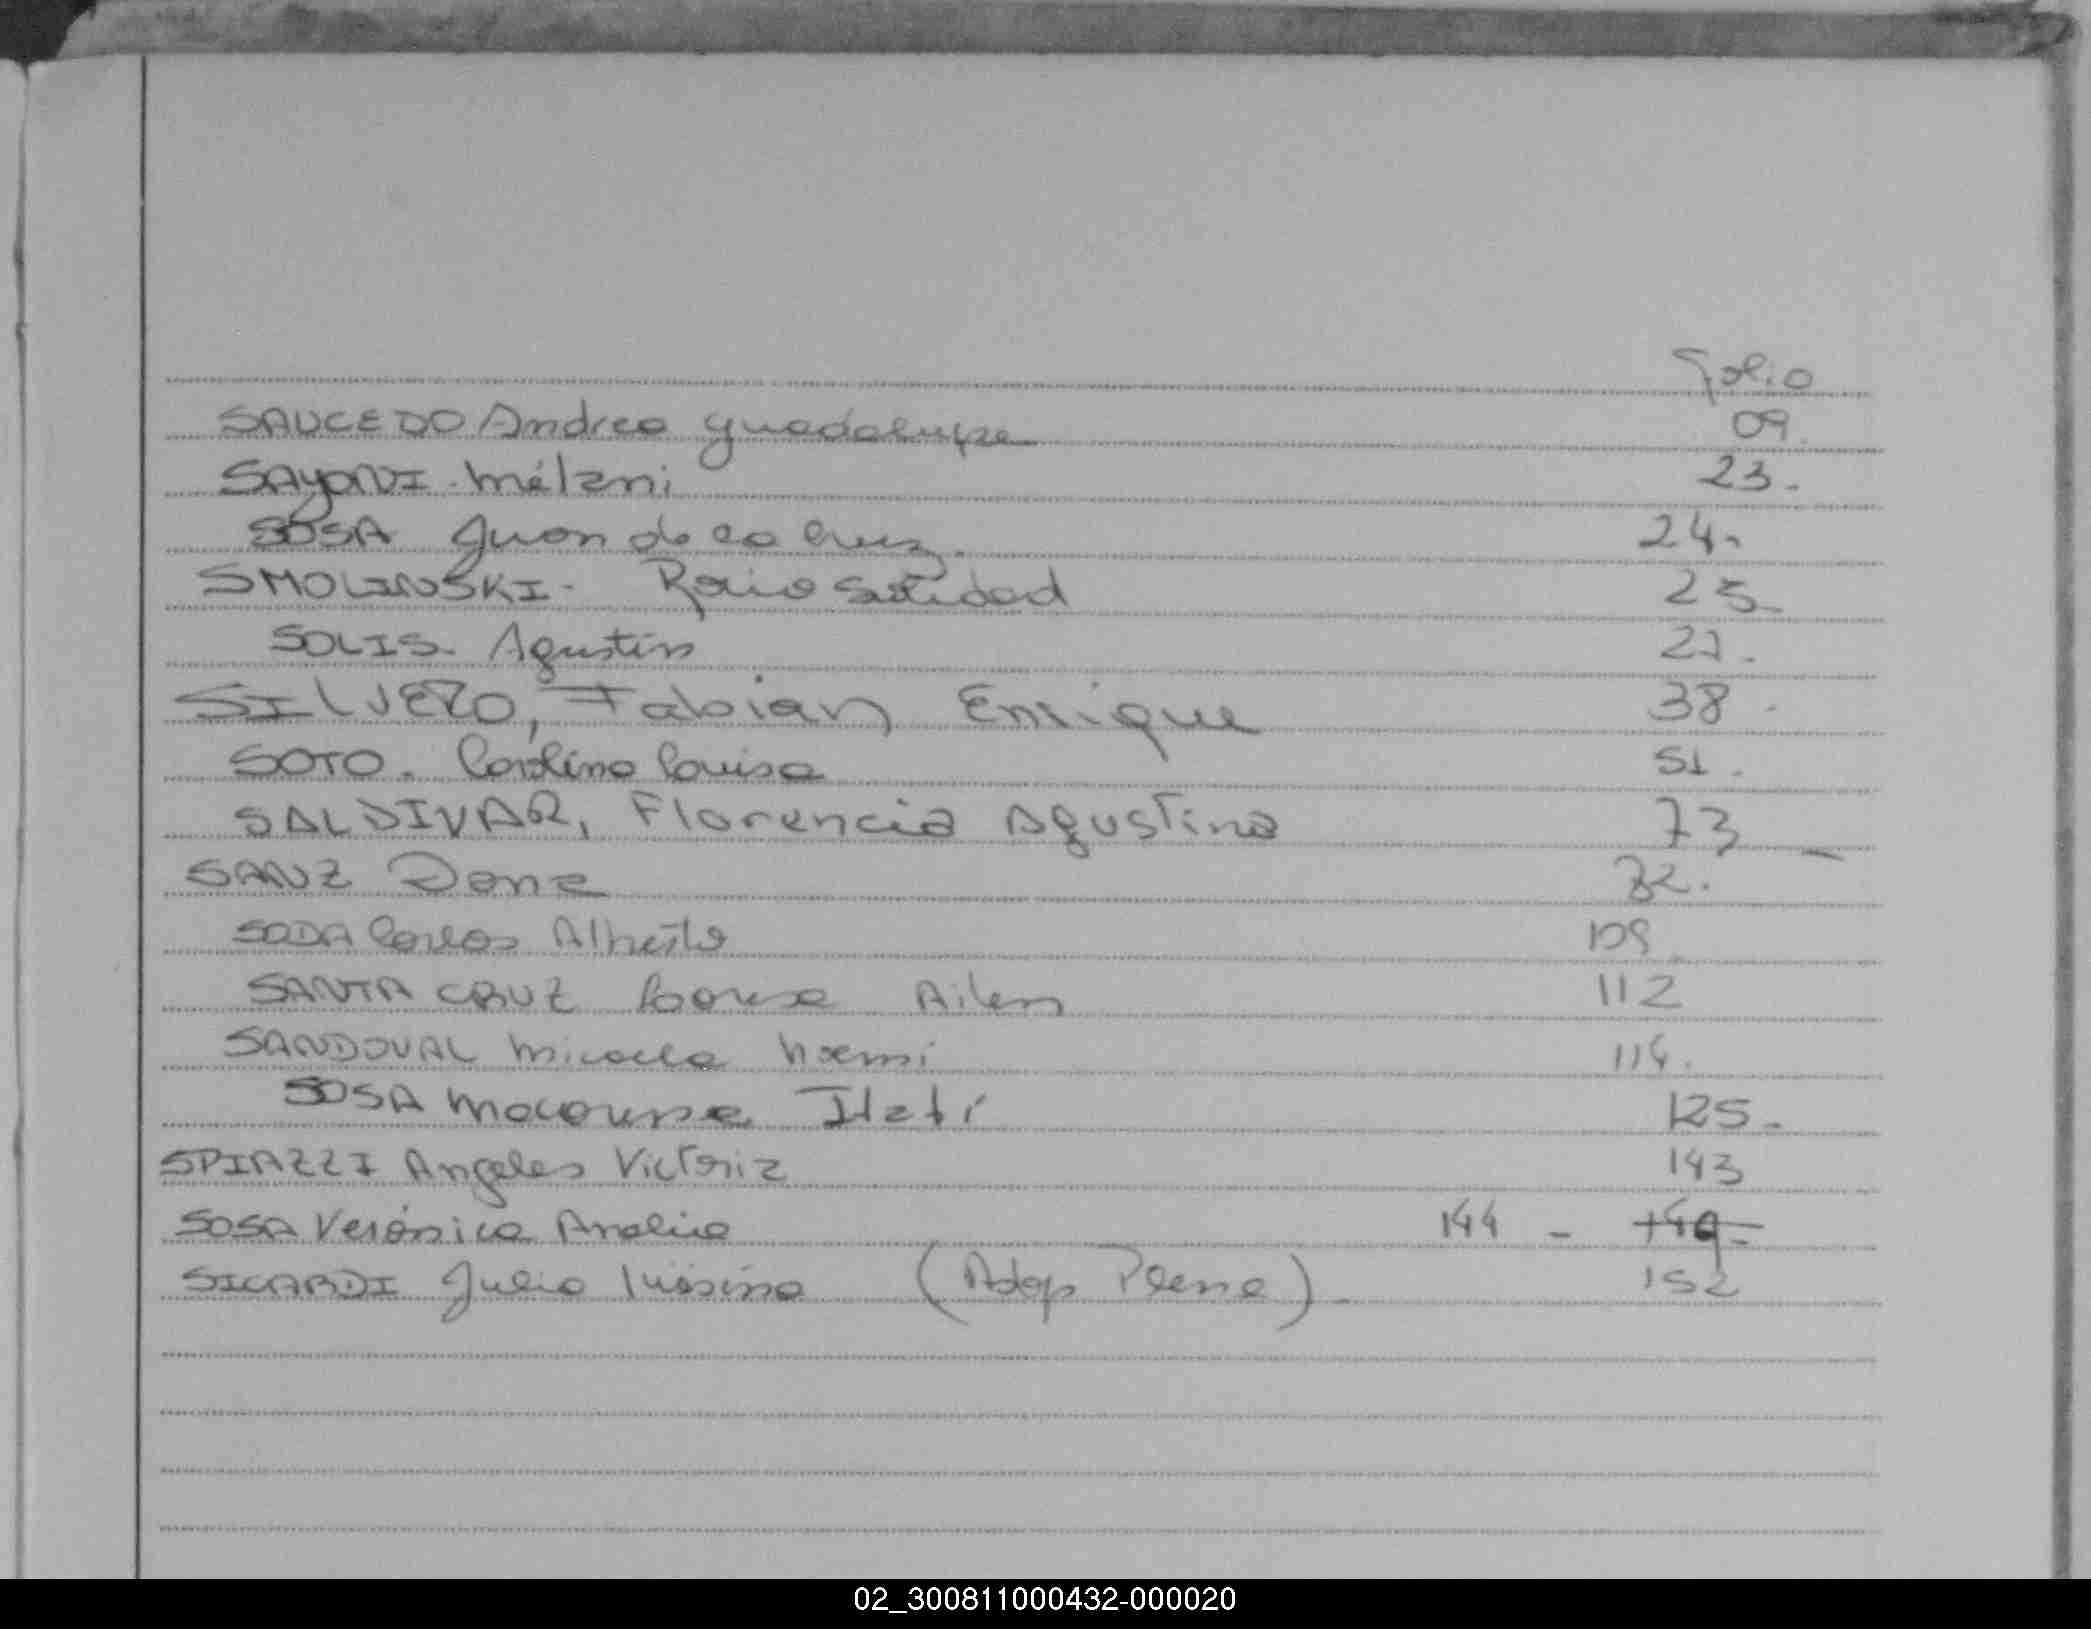 Folio
SAUCEDO Andrea Guadalupe 09.
SAYAVDI. Mélani 23.
SOSA Juan de la Cruz. 24.
SMOLINSKI. Rocio Soledad 25_
SOLIS. Agustin 27.
SILVERO, Fabian Enrique 38.
SOTO. Carolina Luisa 51.
SALDIVAR, Florencia Agustina 73_
SANZ Dana
SODA Carlos Alberto 109.
SANTA CRUZ Ailen 112
SANDOVAL Micaela Noemi 114.
SOSA Macarena Itatí 125.
SPIAZZI Angeles Victoria 143
SOSA Verónica Analia 144 - 149-
SICARDI Julio (Adop Plena). 152
02_300811000432-000020